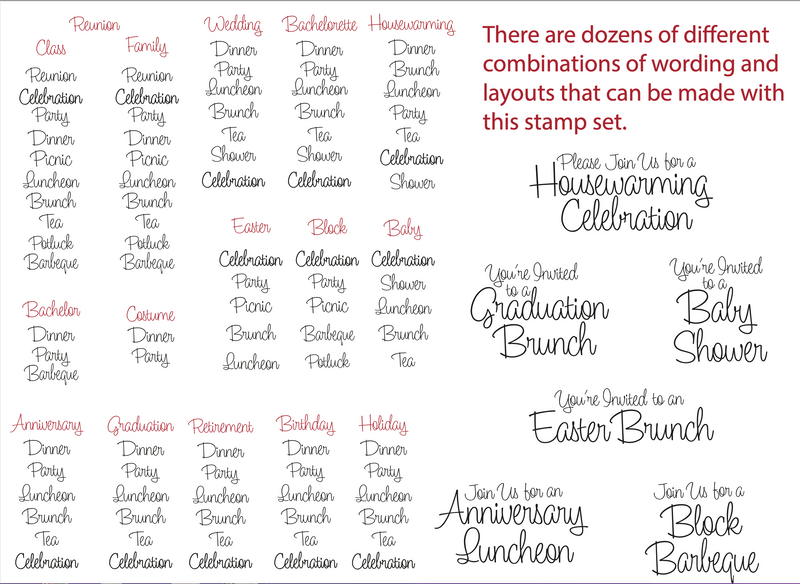 Reunion
Class
Reunion
Celebration
Party
Dinner
Picnic
Luncheon
Brunch
Tea
Potluck
Barbeque
Family
Reunion
Celebration
Party
Dinner
Picnic
Luncheon
Brunch
Tea
Potluck
Barbeque
Wedding
Dinner
Party
Luncheon
Brunch
Tea
Shower
Celebration
Bachelorette
Dinner
Party
Luncheon
Brunch
Tea
Shower
Celebration
Housewarming
Dinner
Brunch
Luncheon
Party
Tea
Celebration
Shower
Easter
Celebration
Party
Picnic
Brunch
Luncheon
Block
Celebration
Party
Picnic
Barbeque
Potluck
Baby
Celebration
Shower
Luncheon
Brunch
Tea
Bachelor
Dinner
Party
Barbeque
Costume
Dinner
Party
Anniversary
Dinner
Party
Luncheon
Brunch
Tea
Celebration
Graduation
Dinner
Party
Luncheon
Brunch
Tea
Celebration
Retirement
Dinner
Party
Luncheon
Brunch
Tea
Celebration
Birthday
Dinner
Party
Luncheon
Brunch
Tea
Celebration
Holiday
Dinner
Party
Luncheon
Brunch
Tea
Celebration
There are dozens of different
combinations of wording and
layouts that can be made with
this stamp set.
Please Join Us for a
Housewarming
Celebration
You're Invited
to a
Graduation
Brunch
You're Invited
to a
Baby
Shower
You're Invited to an
Easter Brunch
Join Us for an
Anniversary
Luncheon
Join Us for a
Block
Barbeque